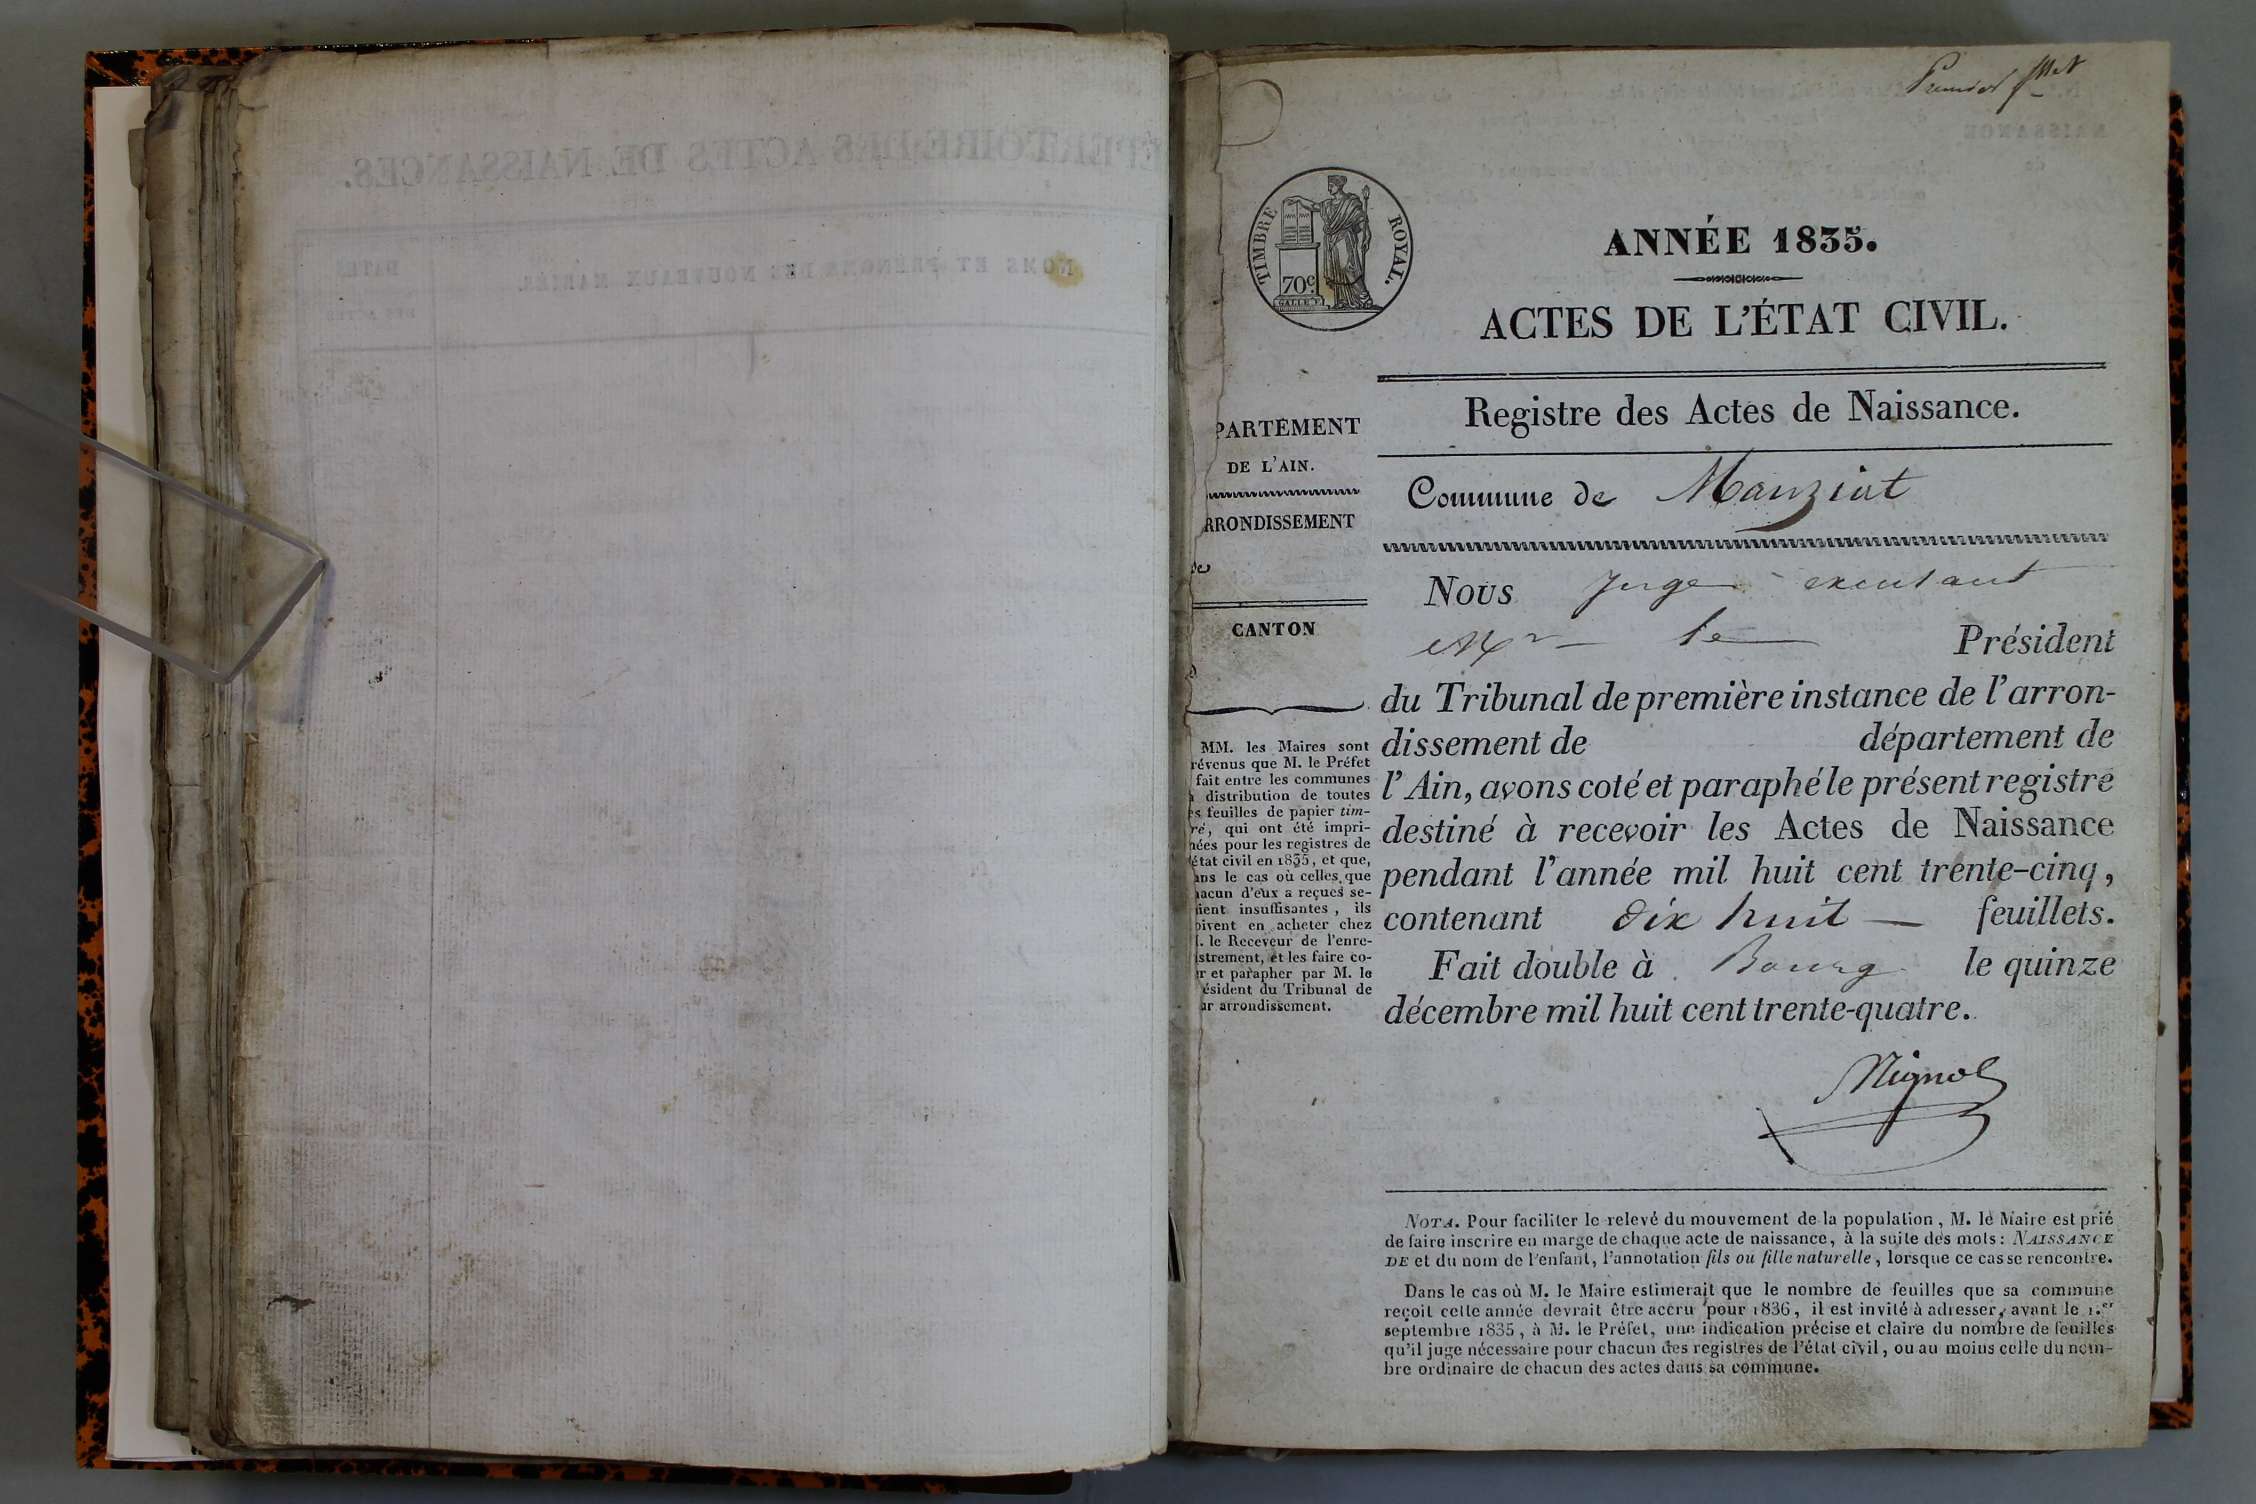 Premier f.llet
TIMBRE ROYAL.
70 c.
GALLE F.
ANNÉE 1835.
ACTES DE L'ÉTAT CIVIL.
Registre des Actes de Naissance.
Commune de Manziat
PARTEMENT
DE L'AIN.
RRONDISSEMENT
de
CANTON
MM. les Maires sont
révenus que M. le Préfet
fait entre les communes
a distribution de toutes
es feuilles de papier tim-
ré, qui ont été impri-
nées pour les registres de
'état civil en 1835, et que,
ans le cas où celles que
hacun d'eux a reçues se-
aient insuffisantes, ils
oivent en acheter chez
I. le Receveur de l'enre-
istrement, et les faire co-
er et parapher par M. le
ésident du Tribunal de
ur arrondissement.
Nous Juge
Mr le Président
du Tribunal de première instance de l'arron-
dissement de département de
l'Ain, avons coté et paraphé le présent registre
destiné à recevoir les Actes de Naissance
pendant l'année mil huit cent trente-cinq,
contenant dix huit — feuillets.
Fait double à Bourg le quinze
décembre mil huit cent trente-quatre.
NOTA. Pour faciliter le relevé du mouvement de la population, M. le Maire est prié
de faire inscrire en marge de chaque acte de naissance, à la suite des mots: NAISSANCE
DE et du nom de l'enfant, l'annotation fils ou fille naturelle, lorsque ce cas se rencontre.
Dans le cas où M. le Maire estimerait que le nombre de feuilles que sa commune
reçoit cette année devrait être accru pour 1836, il est invité à adresser, avant le 1.er
septembre 1835, à M. le Préfet, une indication précise et claire du nombre de feuilles
qu'il juge nécessaire pour chacun des registres de l'état civil, ou au moins celle du nom-
bre ordinaire de chacun des actes dans sa commune.